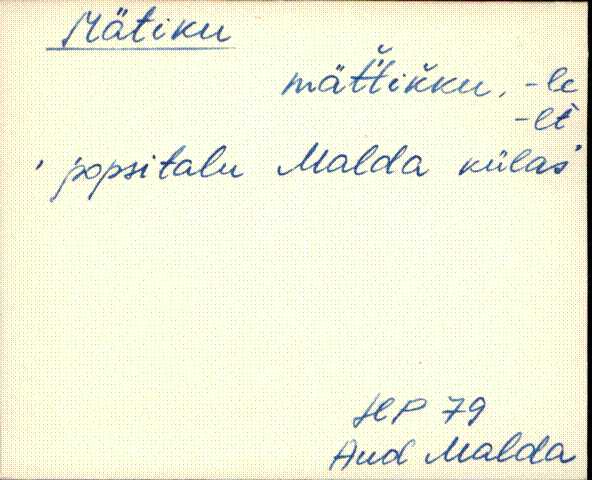 Mätiku
mät̆t̆ik̆ku, -le
-lt
' popsitalu Malda külas'
HP 79
Aud Malda